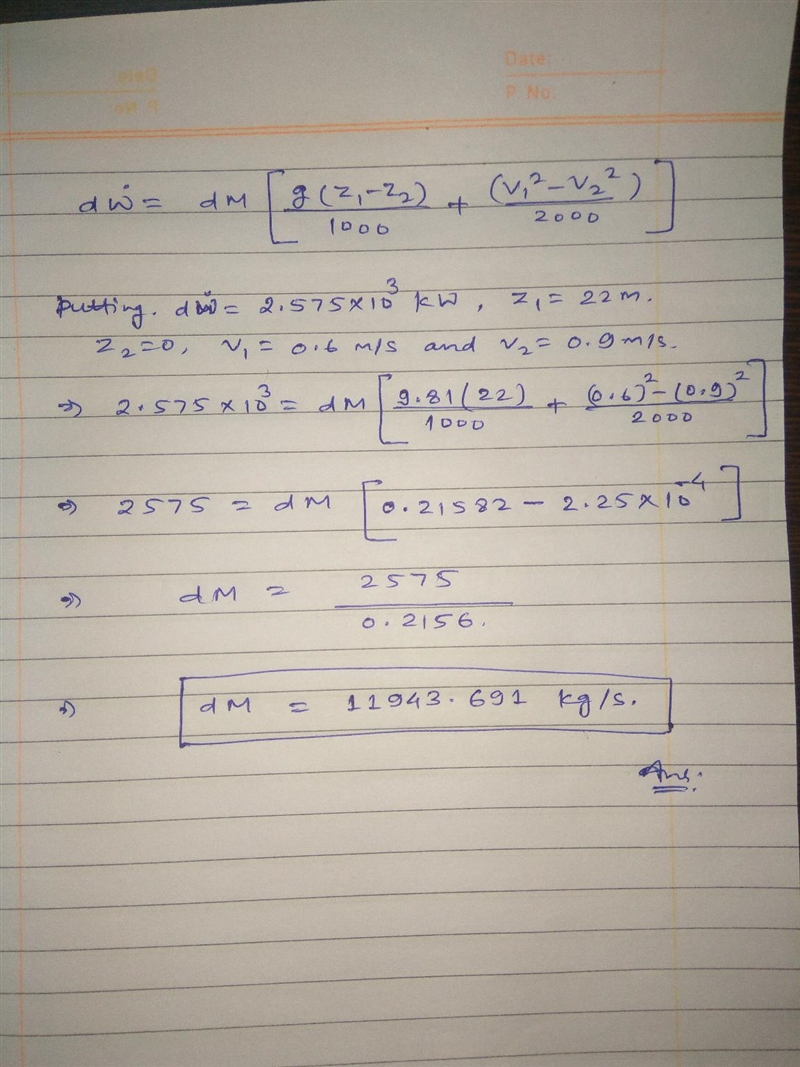 Date:
P. No:
dẆ = dM [ g(z₁-z₂)/1000 + (v₁²-v₂²)/2000 ]
Putting. dẆ = 2.575×10³ kW, z₁ = 22m.
z₂=0, v₁ = 0.6 m/s and v₂ = 0.9m/s.
⇒ 2.575×10³ = dM [ 9.81(22)/1000 + (0.6)²-(0.9)²/2000 ]
⇒ 2575 = dM [0.21582 - 2.25×10⁻⁴]
⇒ dM = 2575/0.2156.
⇒ dM = 11943.691 kg/s.
Ans.